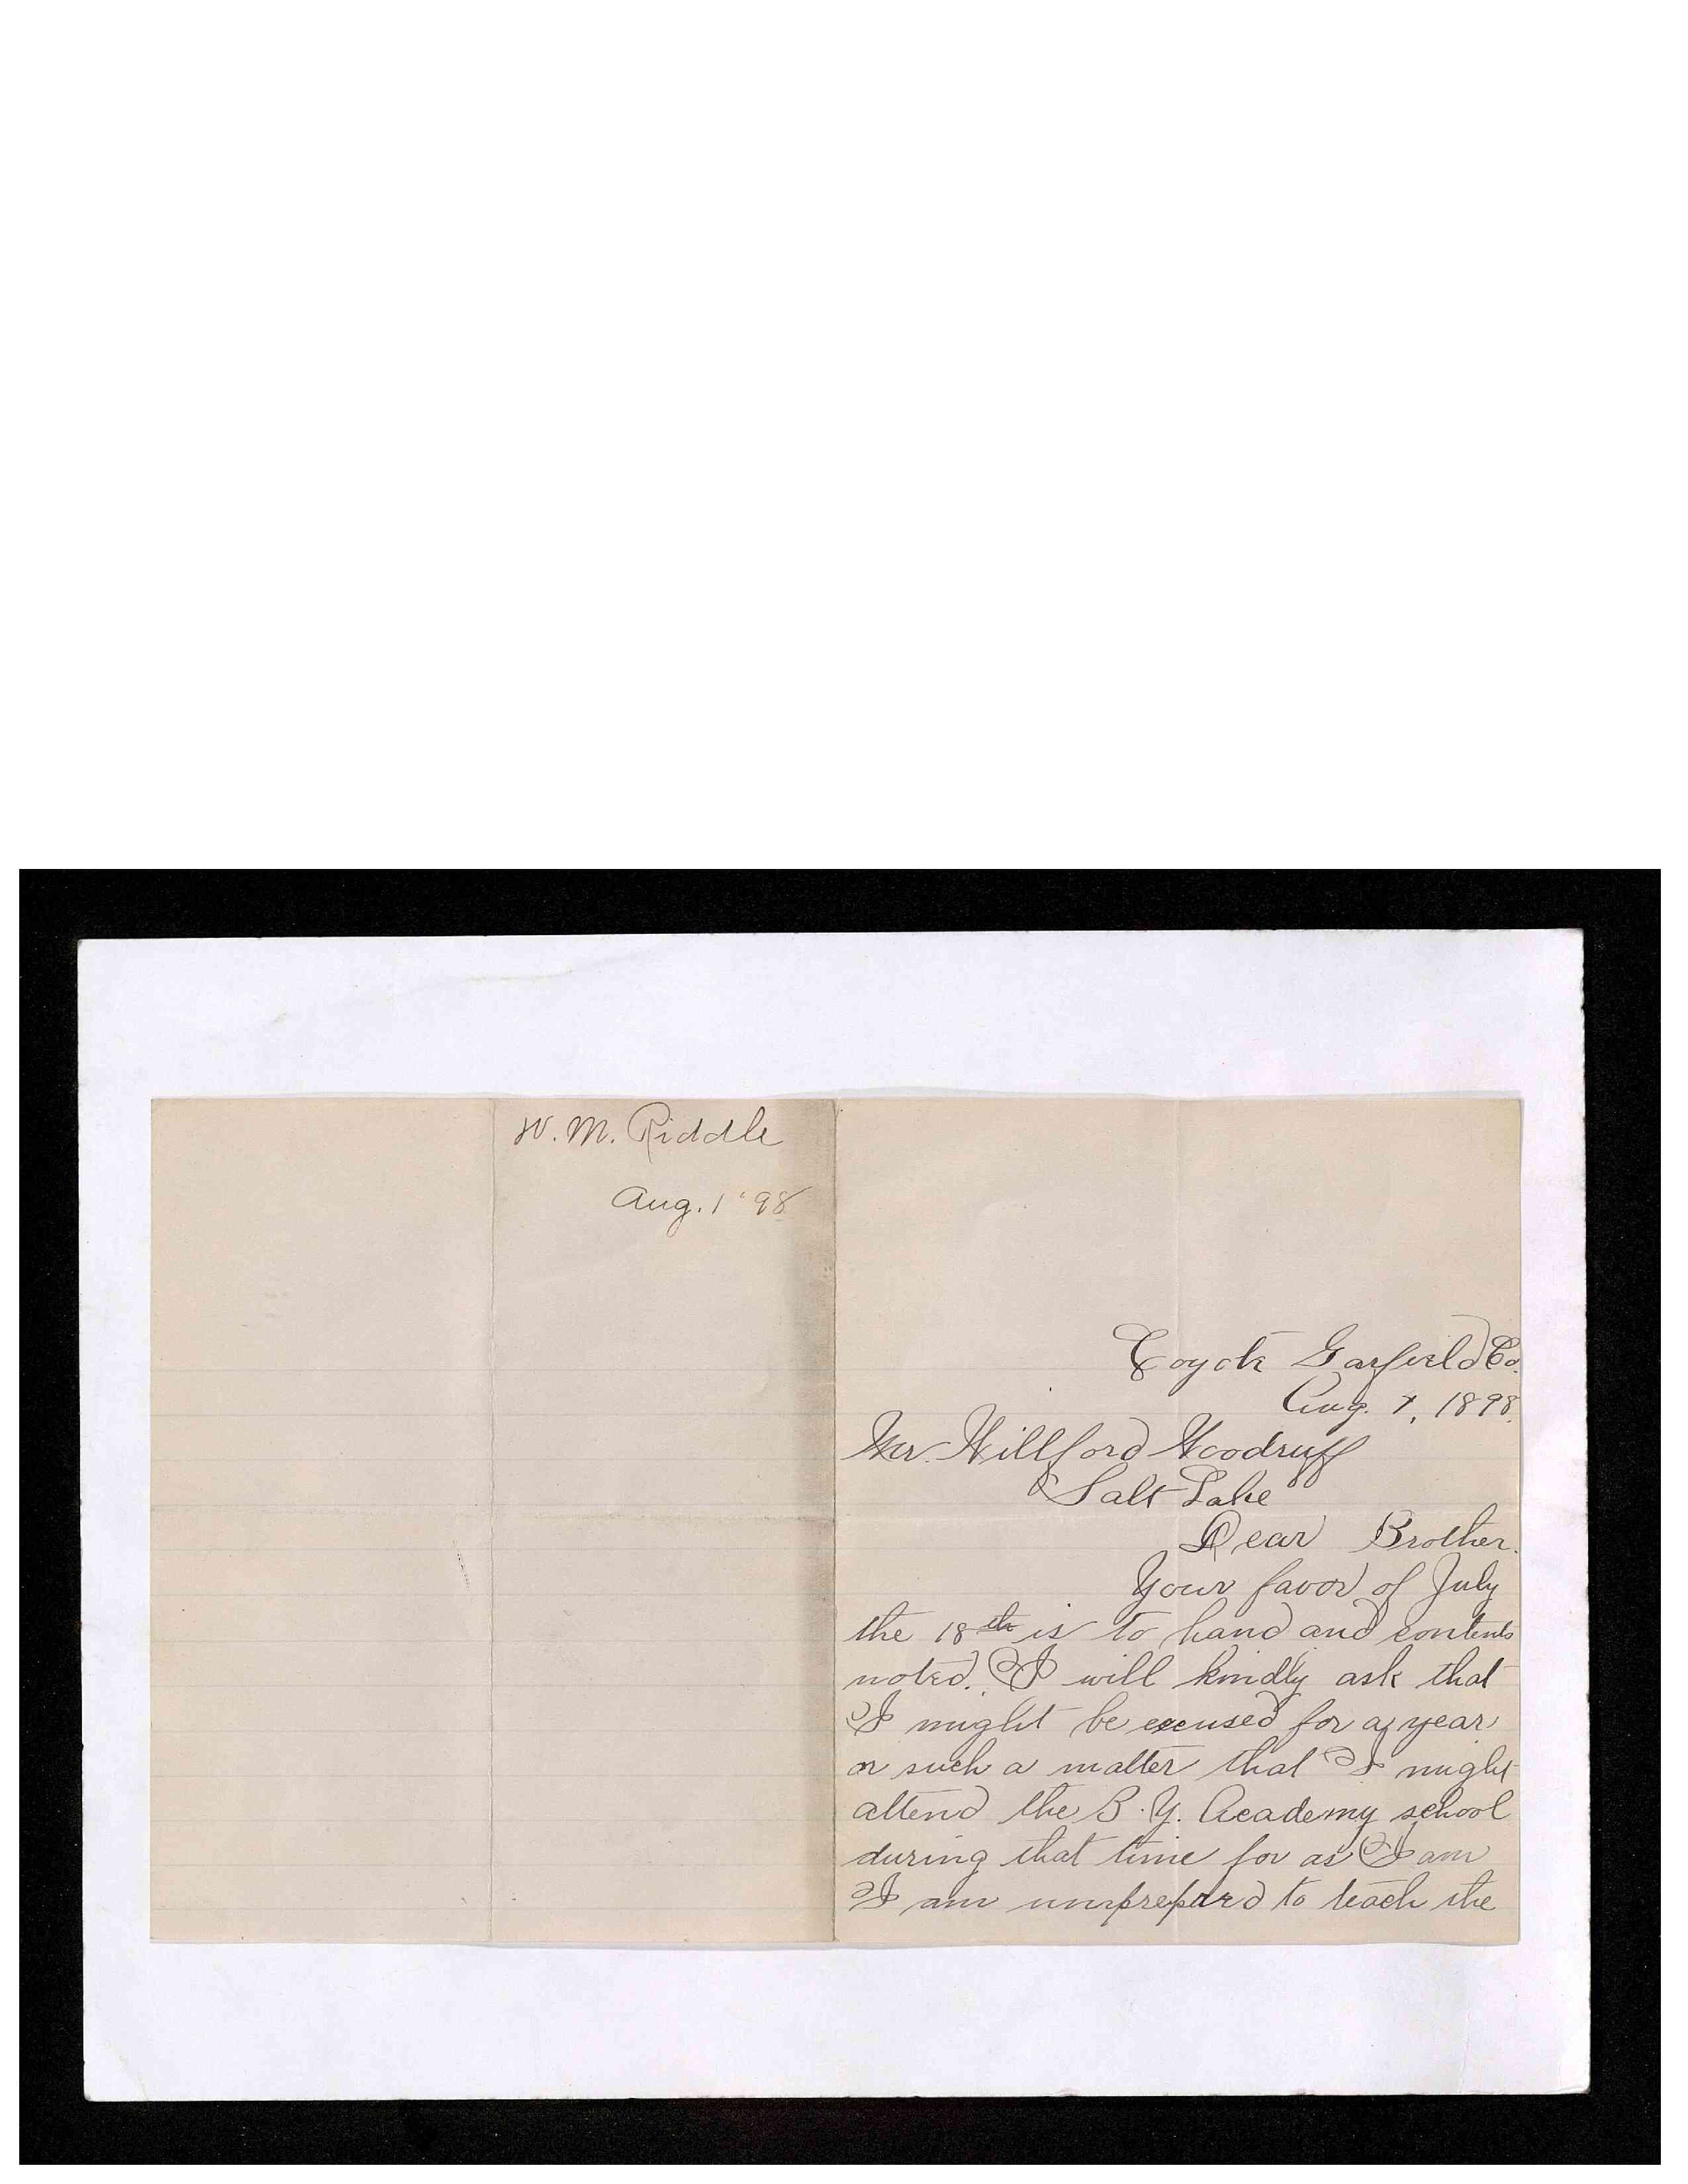 W. M. Riddle
Aug. 1 '98
Coyote Garfield Co.
Aug. 1, 1898.
Mr. Willford Woodruff
Salt Lake
Dear Brother.
Your favor of July
the 18th is to hand and contents
noted. I will kindly ask that
I might be excused for a year
or such a matter that I might
attend the B. Y. Academy school
during that time for as I am
I am unprepared to teach the